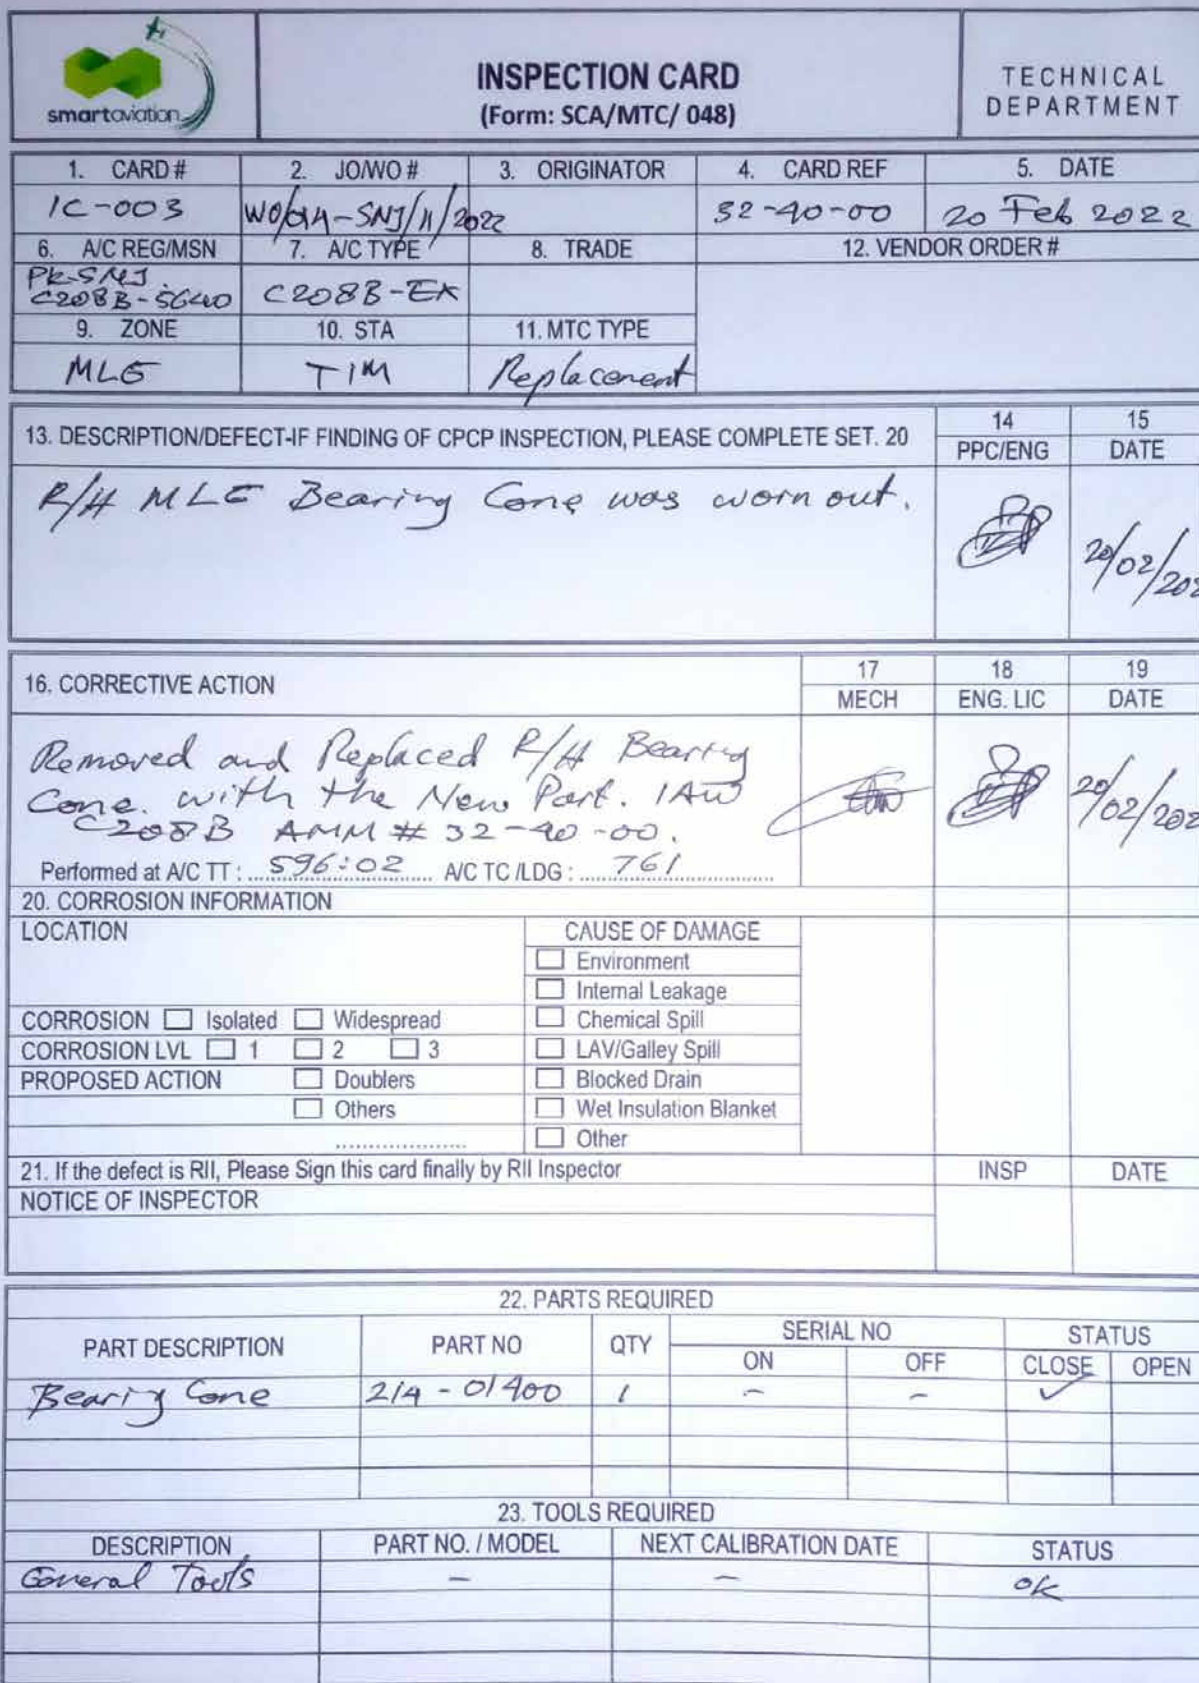 smartaviation
INSPECTION CARD
(Form: SCA/MTC/ 048)
TECHNICAL
DEPARTMENT
1. CARD # 2. JO/WO # 3. ORIGINATOR 4. CARD REF 5. DATE
IC-003 32-40-00 20 Feb 2022
6. A/C REG/MSN 7. A/C TYPE 8. TRADE 12. VENDOR ORDER #
PK-SNJ
C208B-5640 C208B-EX
9. ZONE 10. STA 11. MTC TYPE
MLG TIM Replacement
13. DESCRIPTION/DEFECT-IF FINDING OF CPCP INSPECTION, PLEASE COMPLETE SET. 20 14 15
PPC/ENG DATE
R/H MLG Bearing Cone was worn out.
20/02/202
16. CORRECTIVE ACTION 17 18 19
MECH ENG. LIC DATE
Removed and Replaced R/H Bearing
Cone. with the New Part. IAW
C208B AMM # 32-40-00. 20/02/202
Performed at A/C TT : 596:02 A/C TC /LDG : 761
20. CORROSION INFORMATION
LOCATION CAUSE OF DAMAGE
Environment
Internal Leakage
CORROSION Isolated Widespread Chemical Spill
CORROSION LVL 1 2 3 LAV/Galley Spill
PROPOSED ACTION Doublers Blocked Drain
Others Wet Insulation Blanket
.................... Other
21. If the defect is RII, Please Sign this card finally by RII Inspector INSP DATE
NOTICE OF INSPECTOR
22. PARTS REQUIRED
PART DESCRIPTION PART NO QTY SERIAL NO STATUS
ON OFF CLOSE OPEN
Bearing Cone 214-01400 1 - - ✓
23. TOOLS REQUIRED
DESCRIPTION PART NO. / MODEL NEXT CALIBRATION DATE STATUS
General Tools - - ok